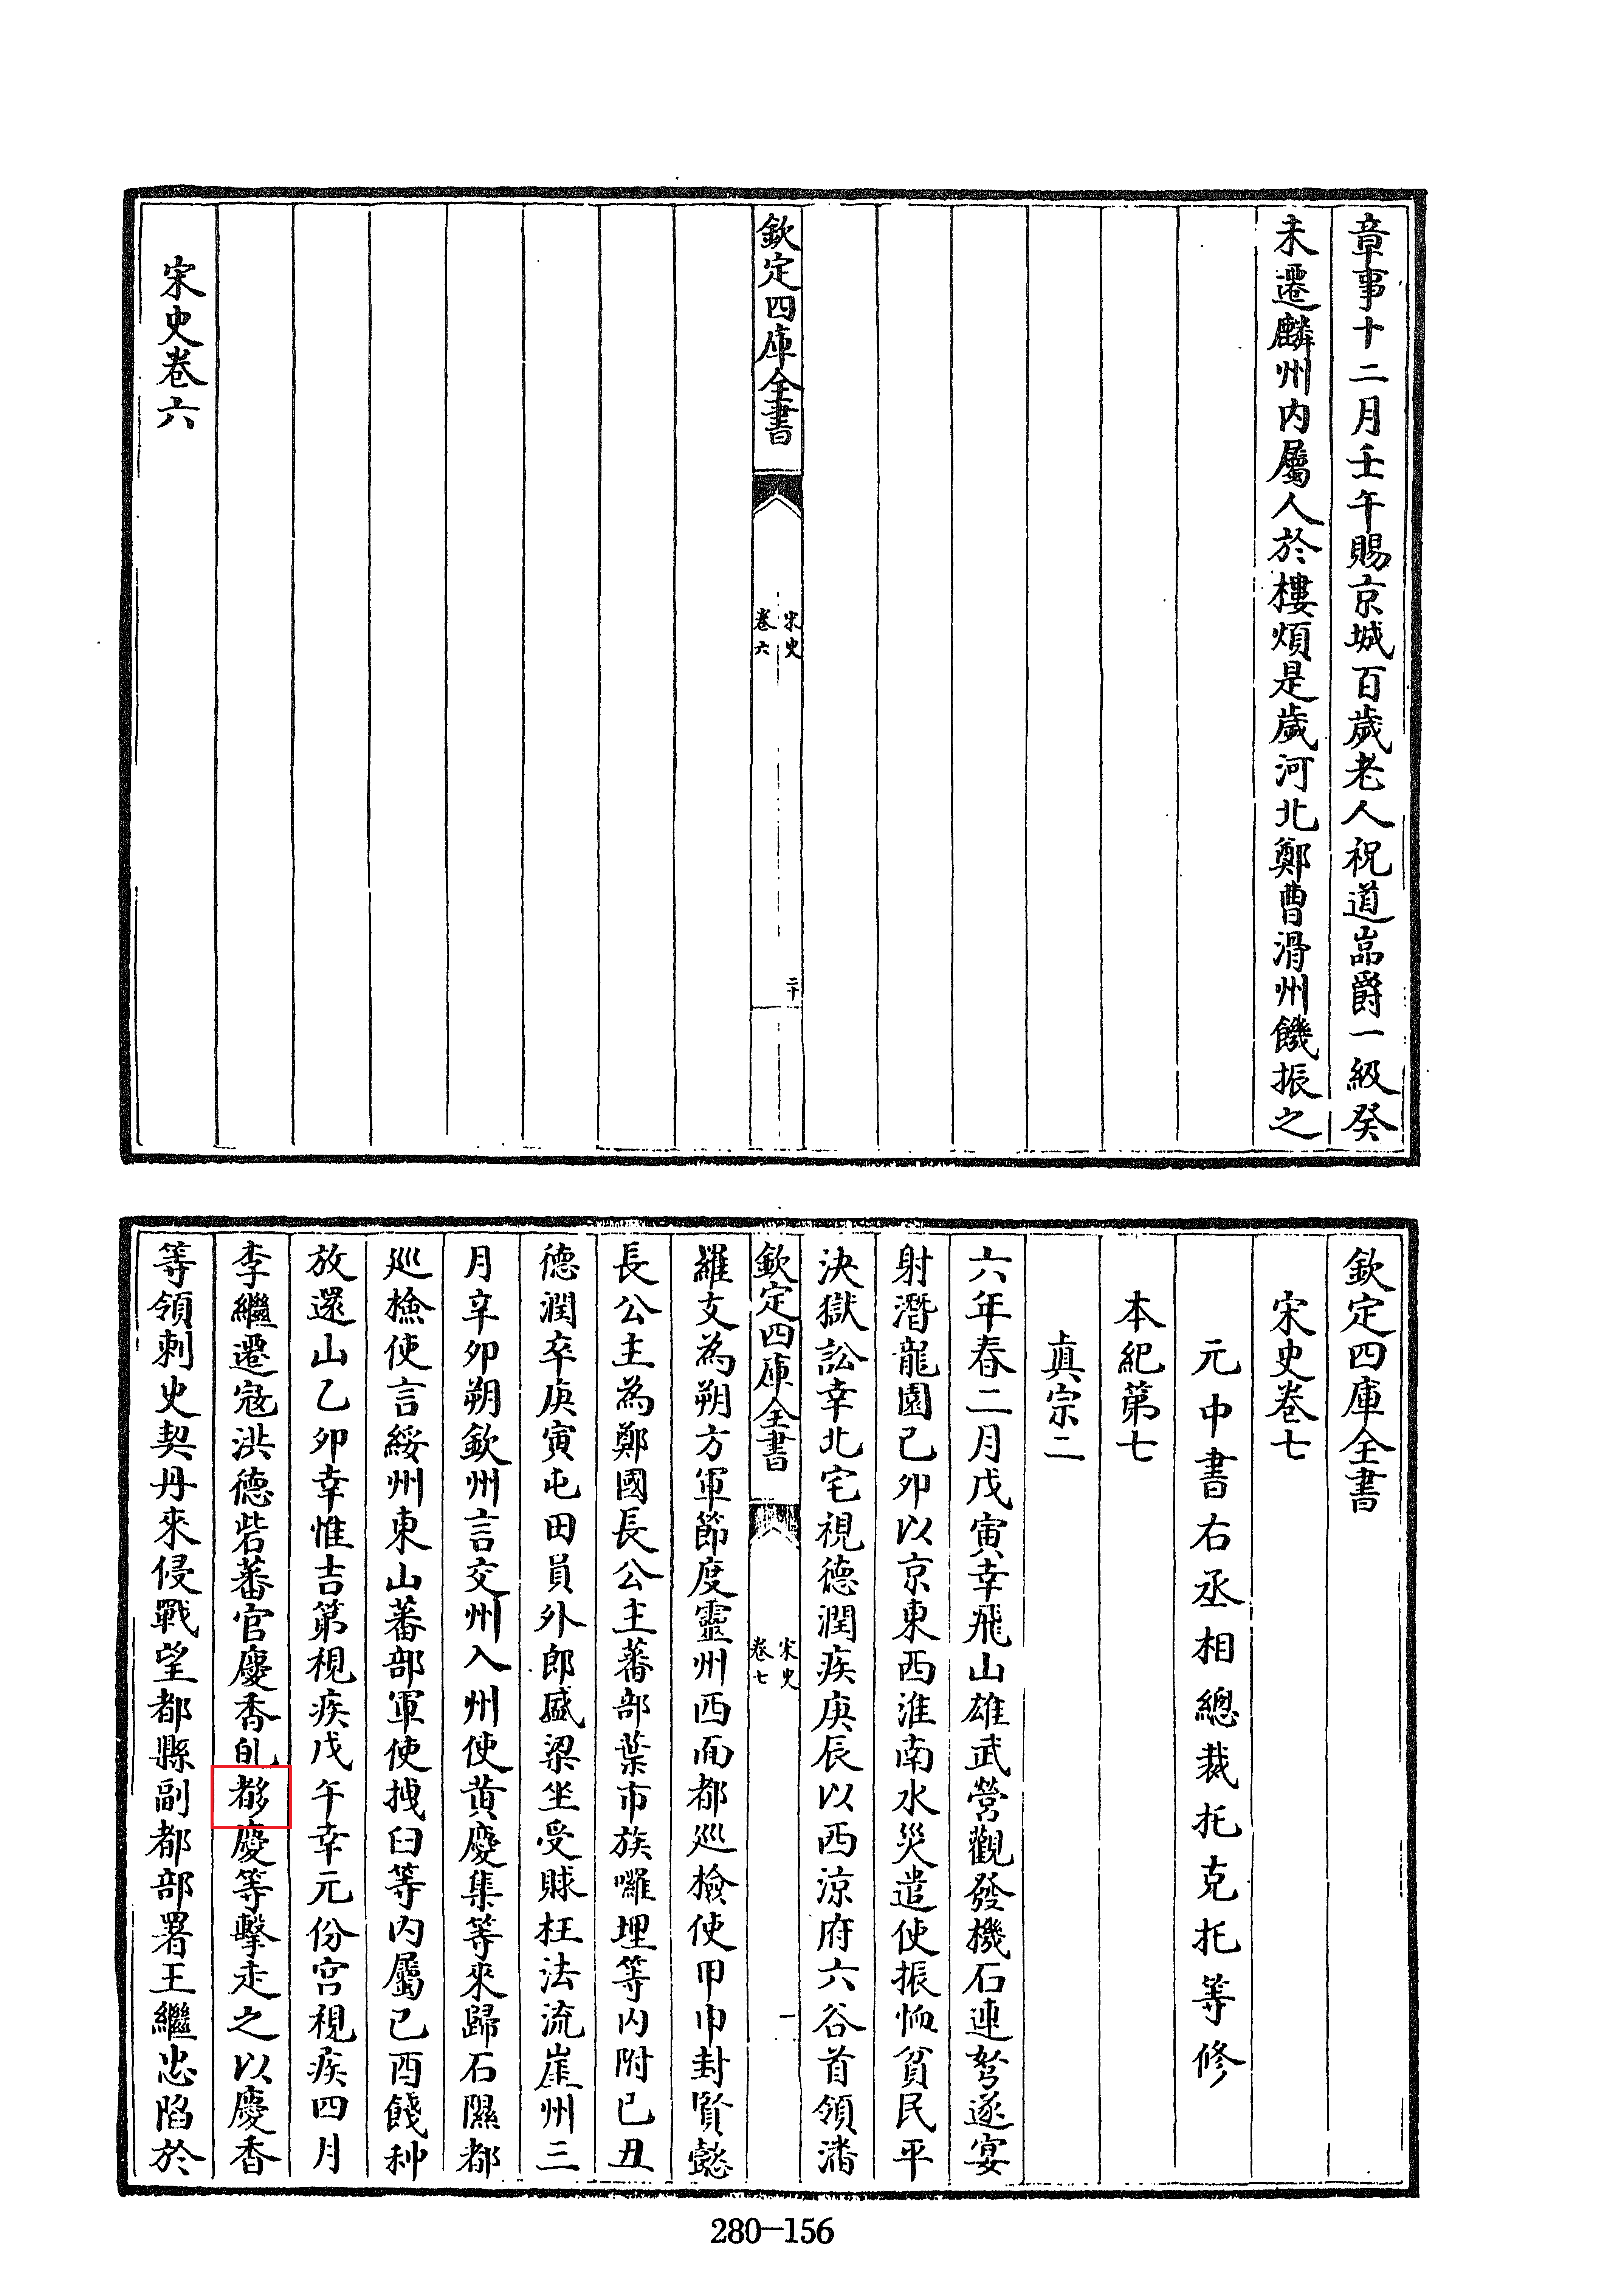 章事十二月壬午賜京城百歲老人祝道嵓爵一級癸
未遷麟州内屬人於樓煩是歲河北鄭曹滑州饑振之
欽定四庫全書
宋史
卷六
二十
宋史卷六
欽定四庫全書
宋史卷七
元中書右丞相總裁托克托等修
本紀第七
真宗二
六年春二月戊寅幸飛山雄武營觀發機石連弩遂宴
射潛龍園己卯以京東西淮南水災遣使振恤貧民平
決獄訟幸北宅視德潤疾庚辰以西涼府六谷首領潘
欽定四庫全書
宋史
卷七
一
羅支為朔方軍節度靈州西面都廵檢使甲巾封賢懿
長公主為鄭國長公主蕃部葉市族囉埋等内附已丑
德潤卒庚寅屯田員外郎盛梁坐受賕枉法流崖州三
月辛卯朔欽州言交州入州使黄慶集等來歸石隰都
廵檢使言綏州東山蕃部軍使拽臼等内屬已酉餞种
放還山乙卯幸惟吉第視疾戊午幸元份宫視疾四月
李繼遷寇洪德砦蕃官慶香癿慶等擊走之以慶香
等領刺史契丹來侵戰望都縣副都部署王繼忠陷於
280-156